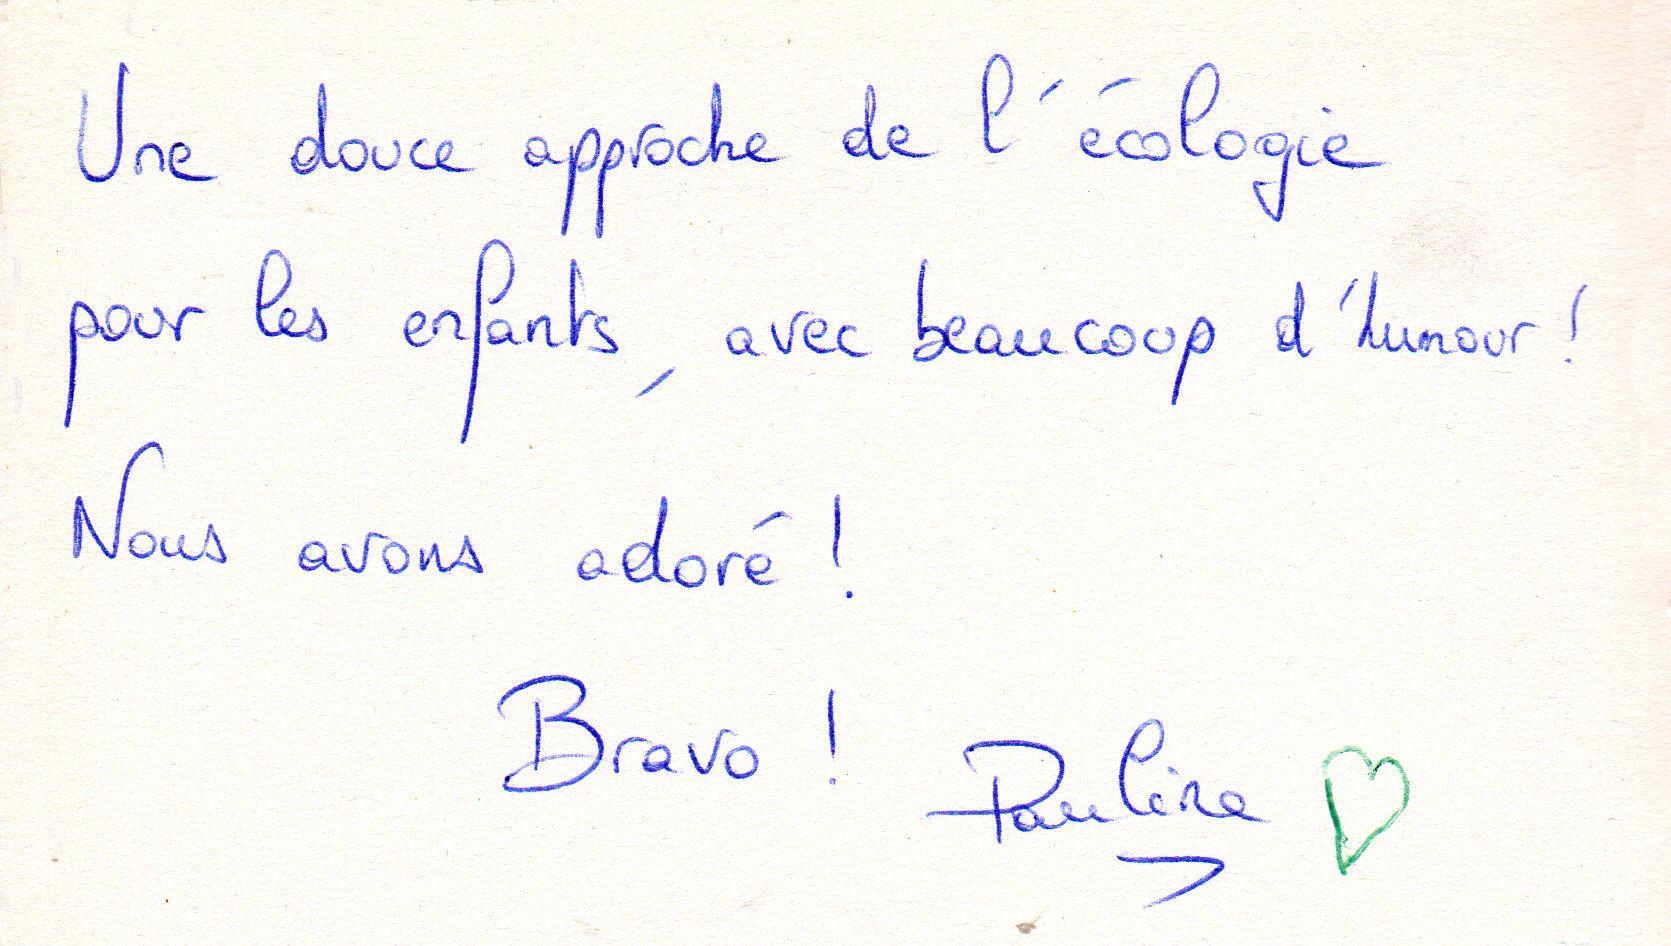 Une douce approche de l'écologie
pour les enfants, avec beaucoup d'humour !
Nous avons adoré !
Bravo ! Pauline